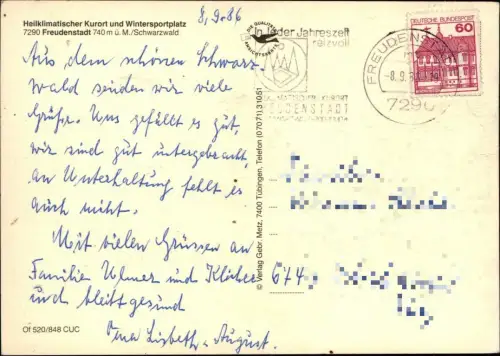 8.9.86
Heilklimatischer Kurort und Wintersportplatz
7290 Freudenstadt 740 m ü. M./Schwarzwald
Aus dem schönen Schwarz-
wald senden wir viele
Grüße. Uns gefällt es gut,
wir sind gut untergebracht,
an Unterhaltung fehlt es
auch nicht.
Mit vielen Grüssen an
Familie Ulmer und
und bleibt gesund
Oma Lisbeth + August.
Of 520/848 CUC
© Verlag Gebr. Metz, 7400 Tübingen, Telefon (07071) 31051
In jeder Jahreszeit
reizvoll
KURORT
FREUDENSTADT
FREUDENSTADT
8.9.86
7290
DEUTSCHE BUNDESPOST
60
674